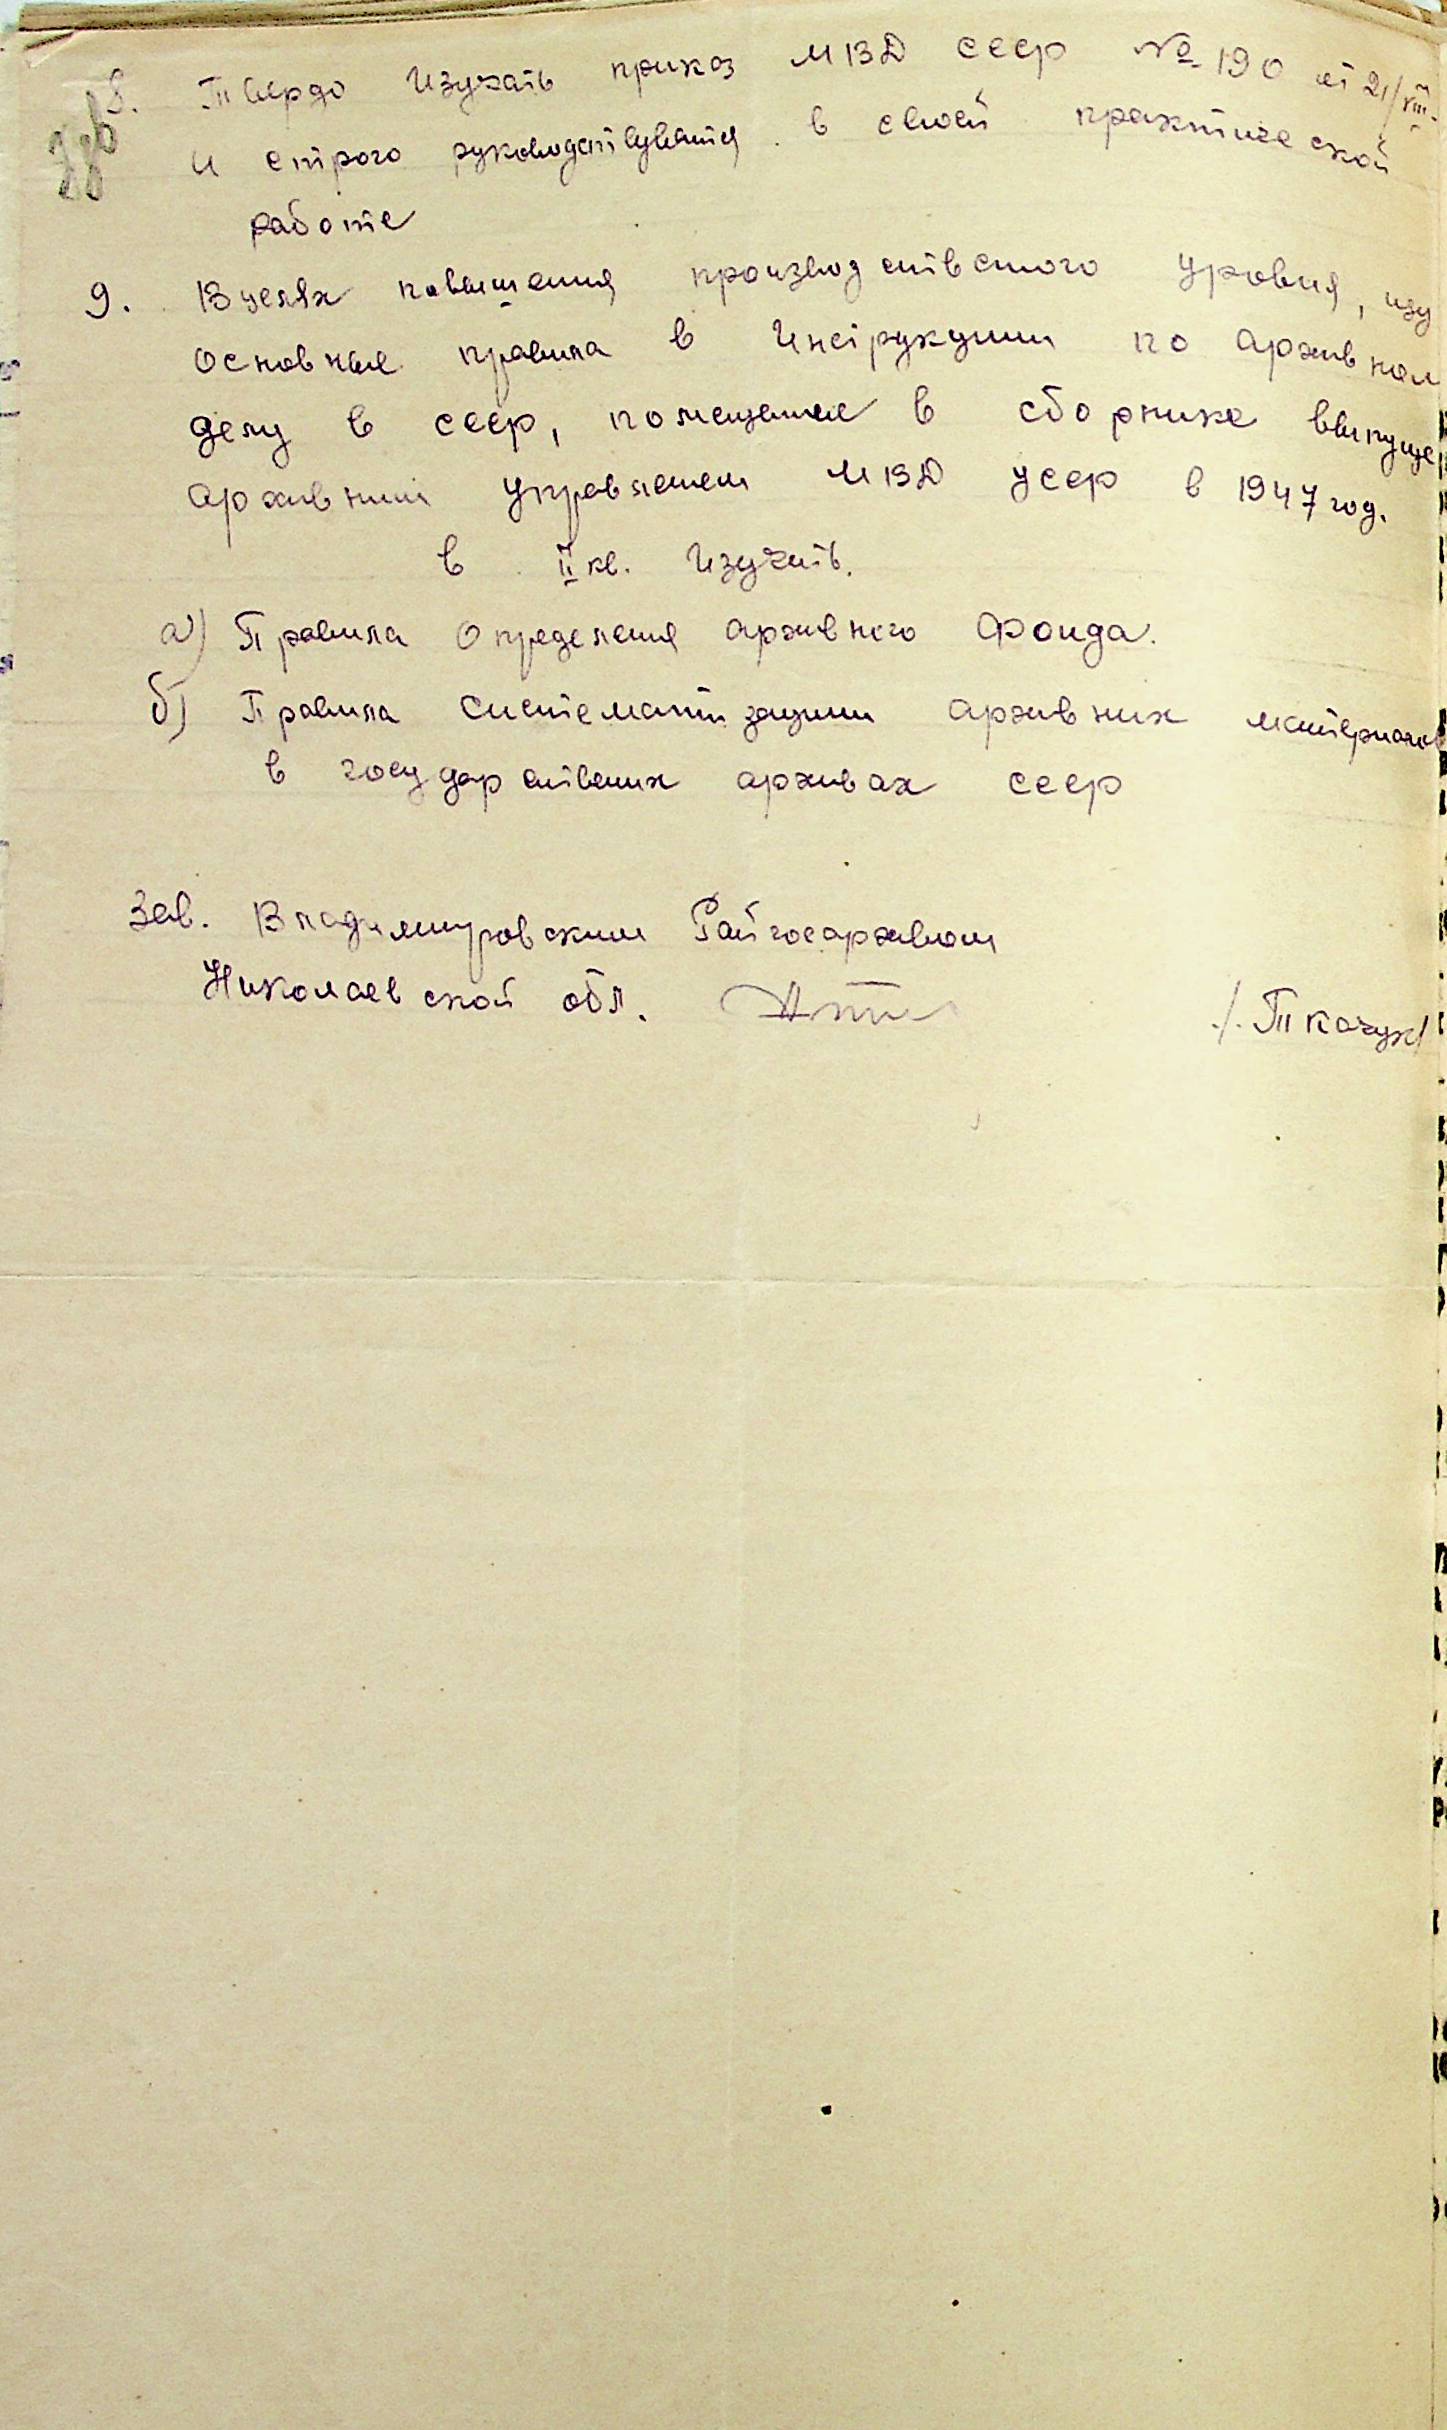 8. Твердо Изучать приказ МВД СССР № 190 от 21/VIII.
и строго руководствуватся в своей практической
работе
9. В целях повышения производственого уровня, изу
основные правила в Инструкции по архивном
делу в СССР, помещение в сборнике выпуще
архивним управлением МВД УССР в 1947 год.
в II кв. Изучить.
а) Правила Определения архивного фонда.
б) Правила систематизации архивних материалов
в государственых архивах СССР
Зав. Владимировским Райгосархивом
Николаевской обл.
/. Ткачук/